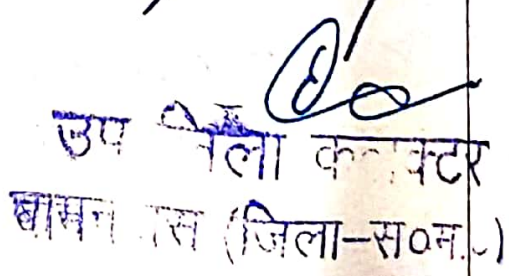 उप जिला कलक्टर
बामनवास (जिला-स०म०)